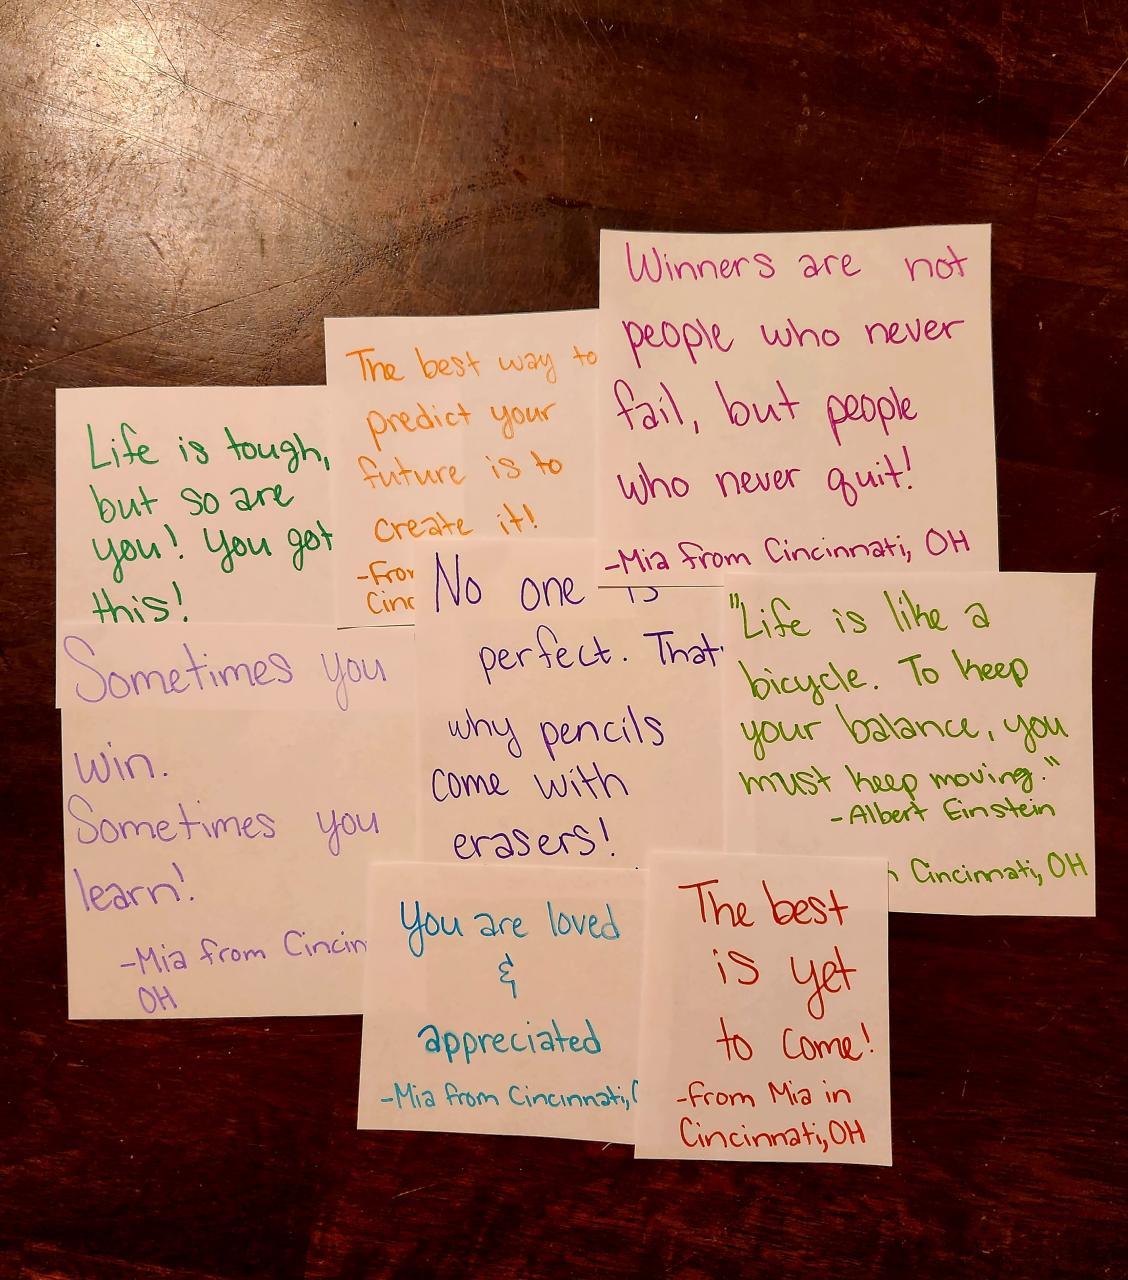 Life is tough,
but so are
you! You got
this!
The best way to
predict your
future is to
create it!
-From
Cinc
Winners are not
people who never
fail, but people
who never quit!
-Mia from Cincinnati, OH
Sometimes you
win.
Sometimes you
learn!
-Mia from Cincin
OH
No one is
perfect. That'
why pencils
come with
erasers!
"Life is like a
bicycle. To keep
your balance, you
must keep moving."
-Albert Einstein
Cincinnati, OH
You are loved
&
appreciated
-Mia from Cincinnati,
The best
is yet
to come!
-From Mia in
Cincinnati, OH